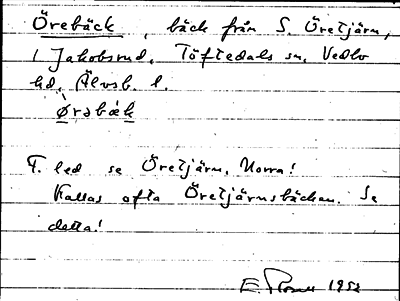 Örebäck, bäck från S. Öretjärn,
i Jakobsrud, Töftedals sn, Vedbo
hd, Älvsb. l.
Ørəbäk
F. led se Öretjärn, Norra!
Kallas ofta Öretjärnsbäcken. Se
detta!
E. 1952